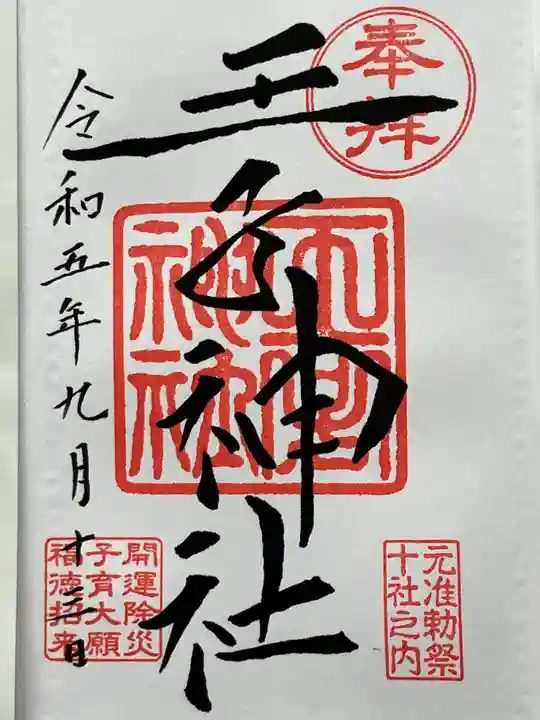 奉拝
王子神社
元准勅祭
十社之内
令和五年九月十三日
開運除災
子育大願
福徳招来